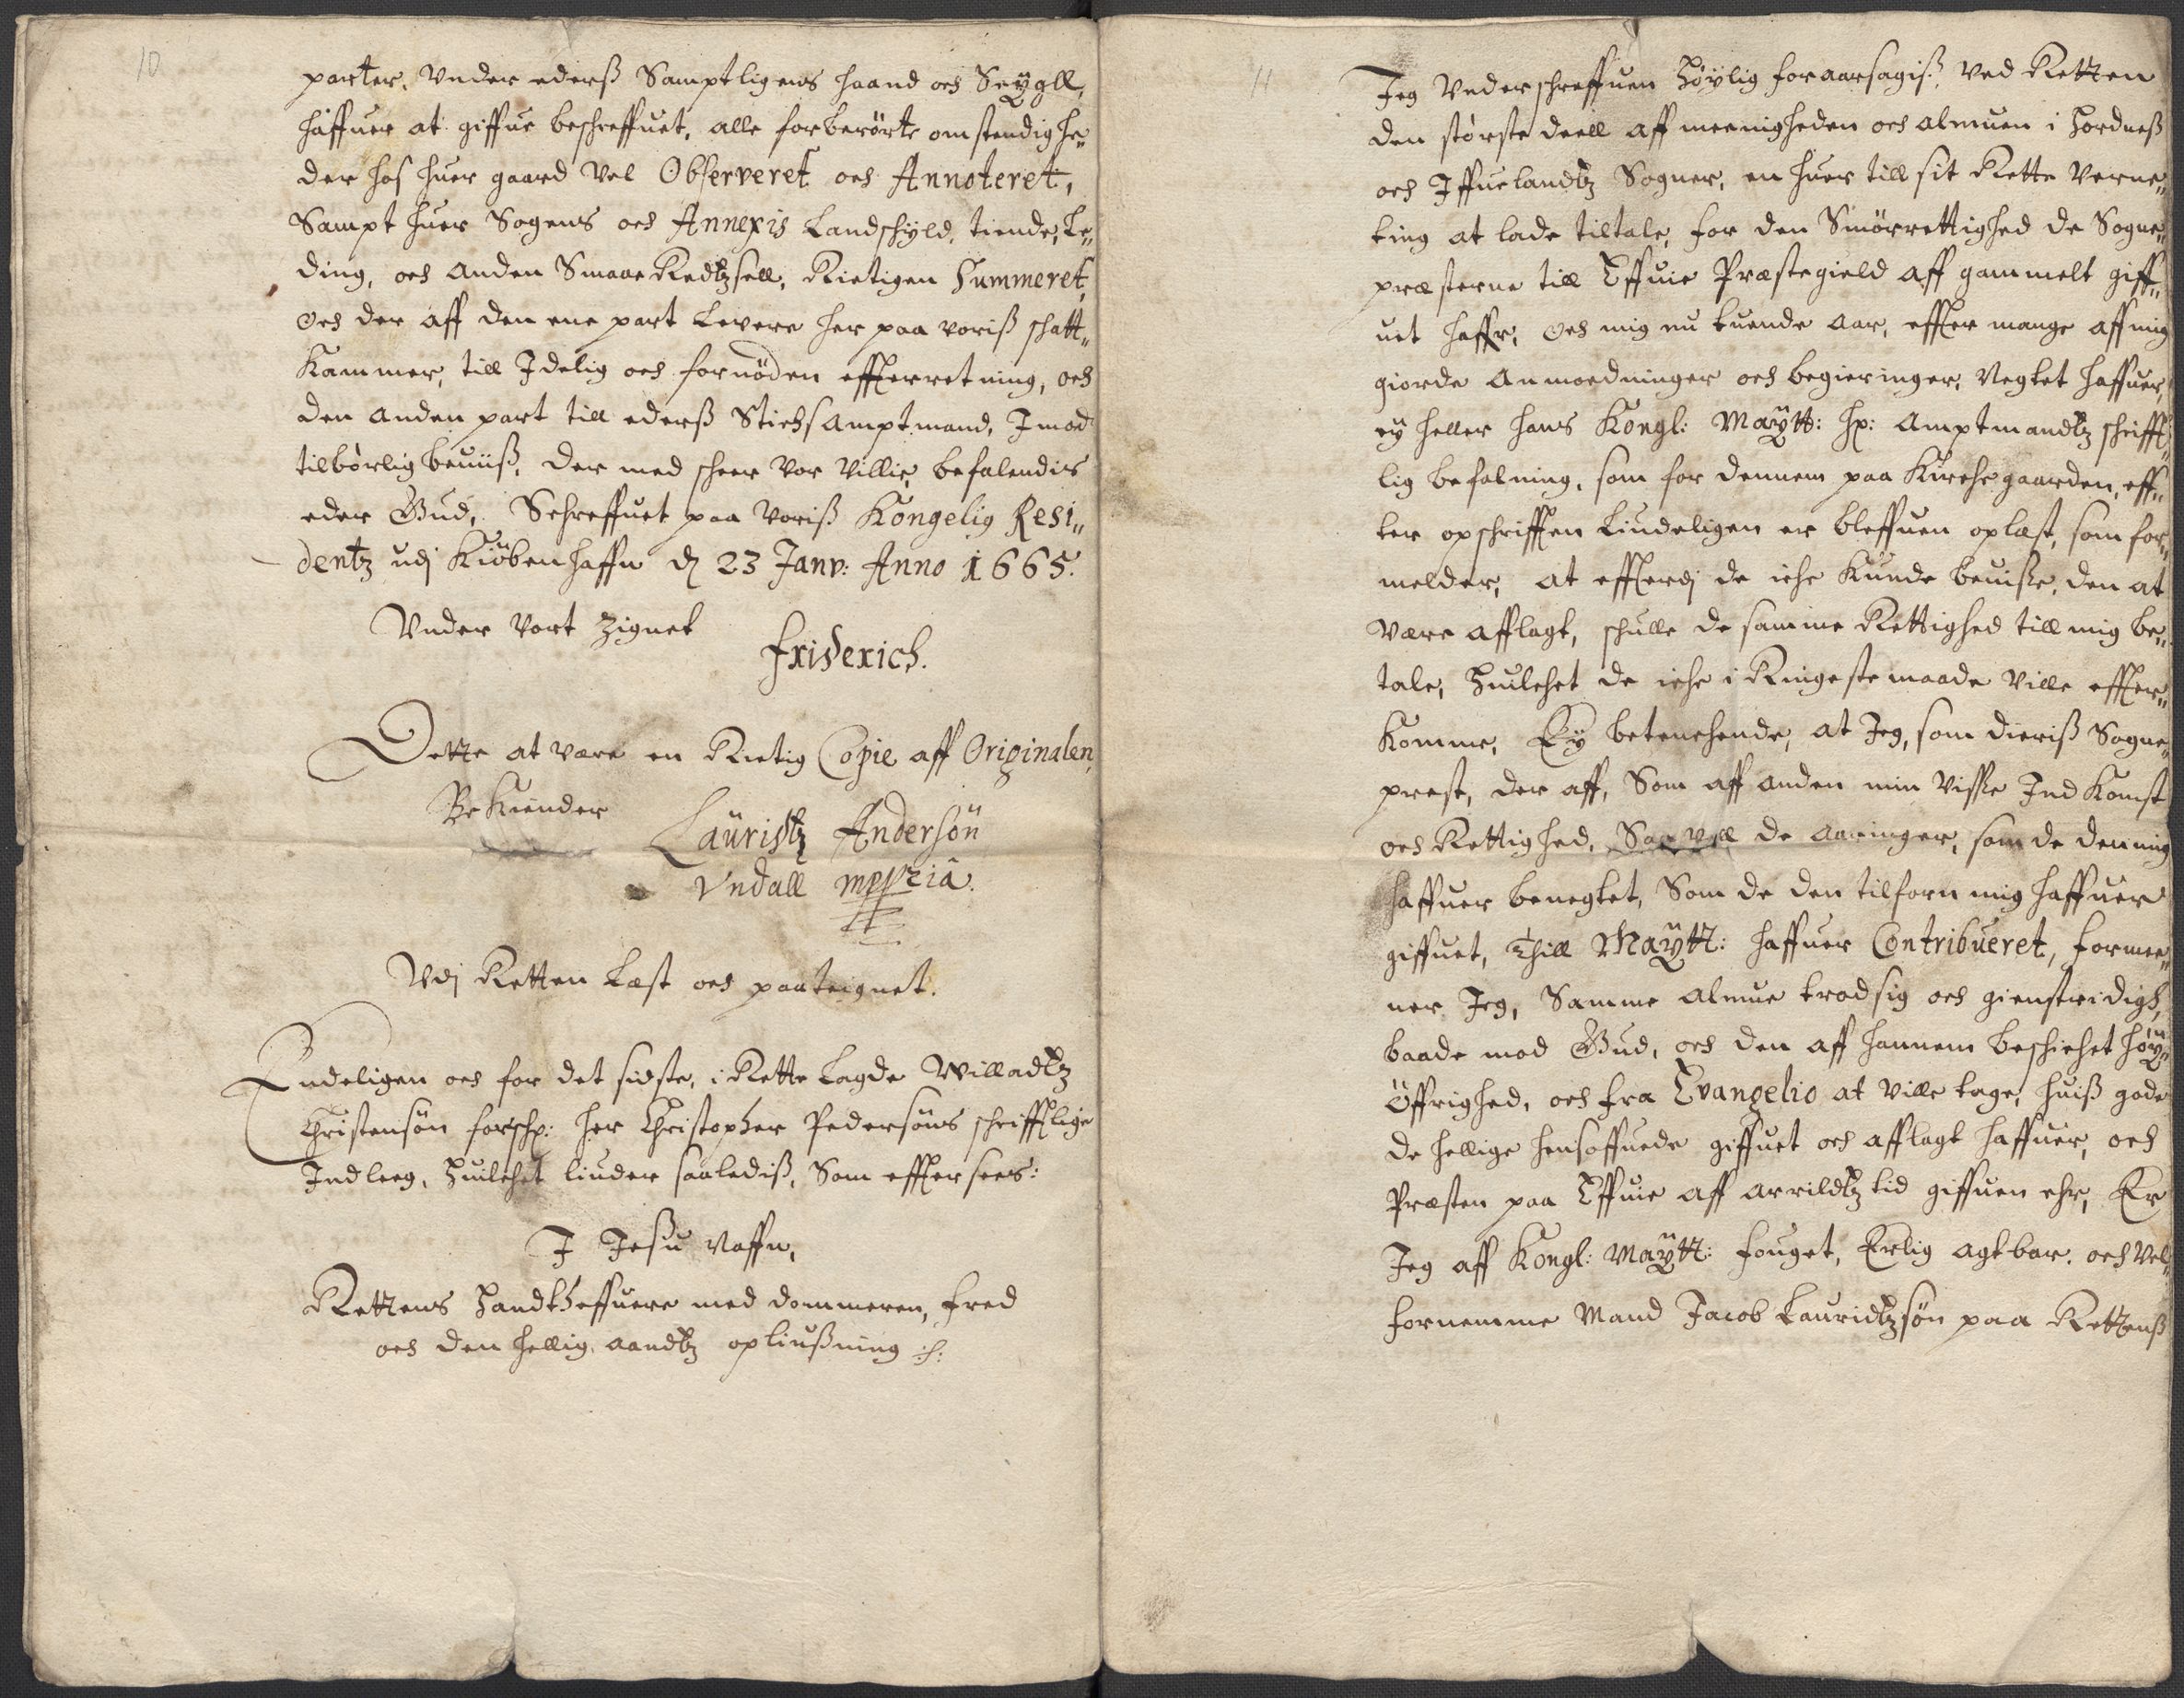 10
parter. Under ederß Samptligens haand och Seygll,
haffuer at giffue beschreffuet, alle forberörte omstendighe„
der hos huer gaard vel Observeret och Annoteret,
Sampt huer Sogens och Annexis Landschyld, tiende, Le„
ding, och anden Smaae Redtzsell, Rictigen Summeret,
och der aff den ene part Levere her paa voriß schatt„
Kammer, till Idelig och fornöden effterretning, och
den anden part till ederß Stichsamptmand, Imod
tilbørlig beuiiß, der med scheer vor villie, befalendis
eder Gud, Schreffuet paa voriß Kongelig Resi„
dentz udj Kiöbenhaffn dj 23 Janv: Anno 1665.
Under vort Zignet
Friderich.
Dette at være en Rictig Copie aff Originalen,
Bekiender
Lauridtz Andersön
Undall mppriâ.
Udj Retten Læst och paateignet.
Endeligen och for det sidste, i Rette Lagde Willadtz
Christensön forschr: her Christopher Pedersöns schrifftlige
Indleeg, huilchet liuder saalediß, Som efftersees:
I Jesu Naffn,
Rettens Handtheffuere med dommeren, fred
och den hellig aandtz opliußning :/:
11
Jeg Underschreffuen Höylig foraarsagiß, ved Retten
den störste deell aff meenigheden och almuen i Hordneß
och Iffuelandtz Sogner, en huer till sit Rette verne„
ting at lade tiltale, for den Smörrettighed de Sogne„
præsterne till Effuie Præstegield aff gammelt giff„
uet haffr, och mig nu tuende aar, effter mange aff mig
giorde anmoedninger och begieringer, Negtet haffuer,
ey heller hans Kongl: Maytt: hr: Amptmandtz schrifft„
lig befalning, som for dennem paa Kirchegaarden, eff„
ter opschrifften liudeligen er bleffuen oplæst, som for„
melder, at effterdj de iche Kunde beuiße, den at
være afflagt, schulle de samme Rettighed till mig be„
tale, huilchet de iche i Ringeste maade ville effter„
Komme, Ey betenchende, at Jeg, som dieriß Sogne„
prest, der aff, Som aff anden min visse Indkomst
och Rettighed, Saa vell de aaringer, som de den mig
haffuer benegtet, Som de den tilforn mig haffuer
giffuet, Till Maytt: haffuer Contribueret, formee„
ner Jeg, Samme almue trodsig och gienstridigh,
baade mod Gud, och den aff hannem beschichet höy„
öffrighed, och fra Evangelio at ville tage, huiß gode
de hellige hensoffuede giffuet och afflagt haffuer, och
Præsten paa Effuie aff arrildtz tid giffuen ehr, Er
Jeg aff Kongl: Maytt: fouget, Erlig agtbar. och Vel„
fornemme Mand Jacob Lauridtzsön paa Rettenß